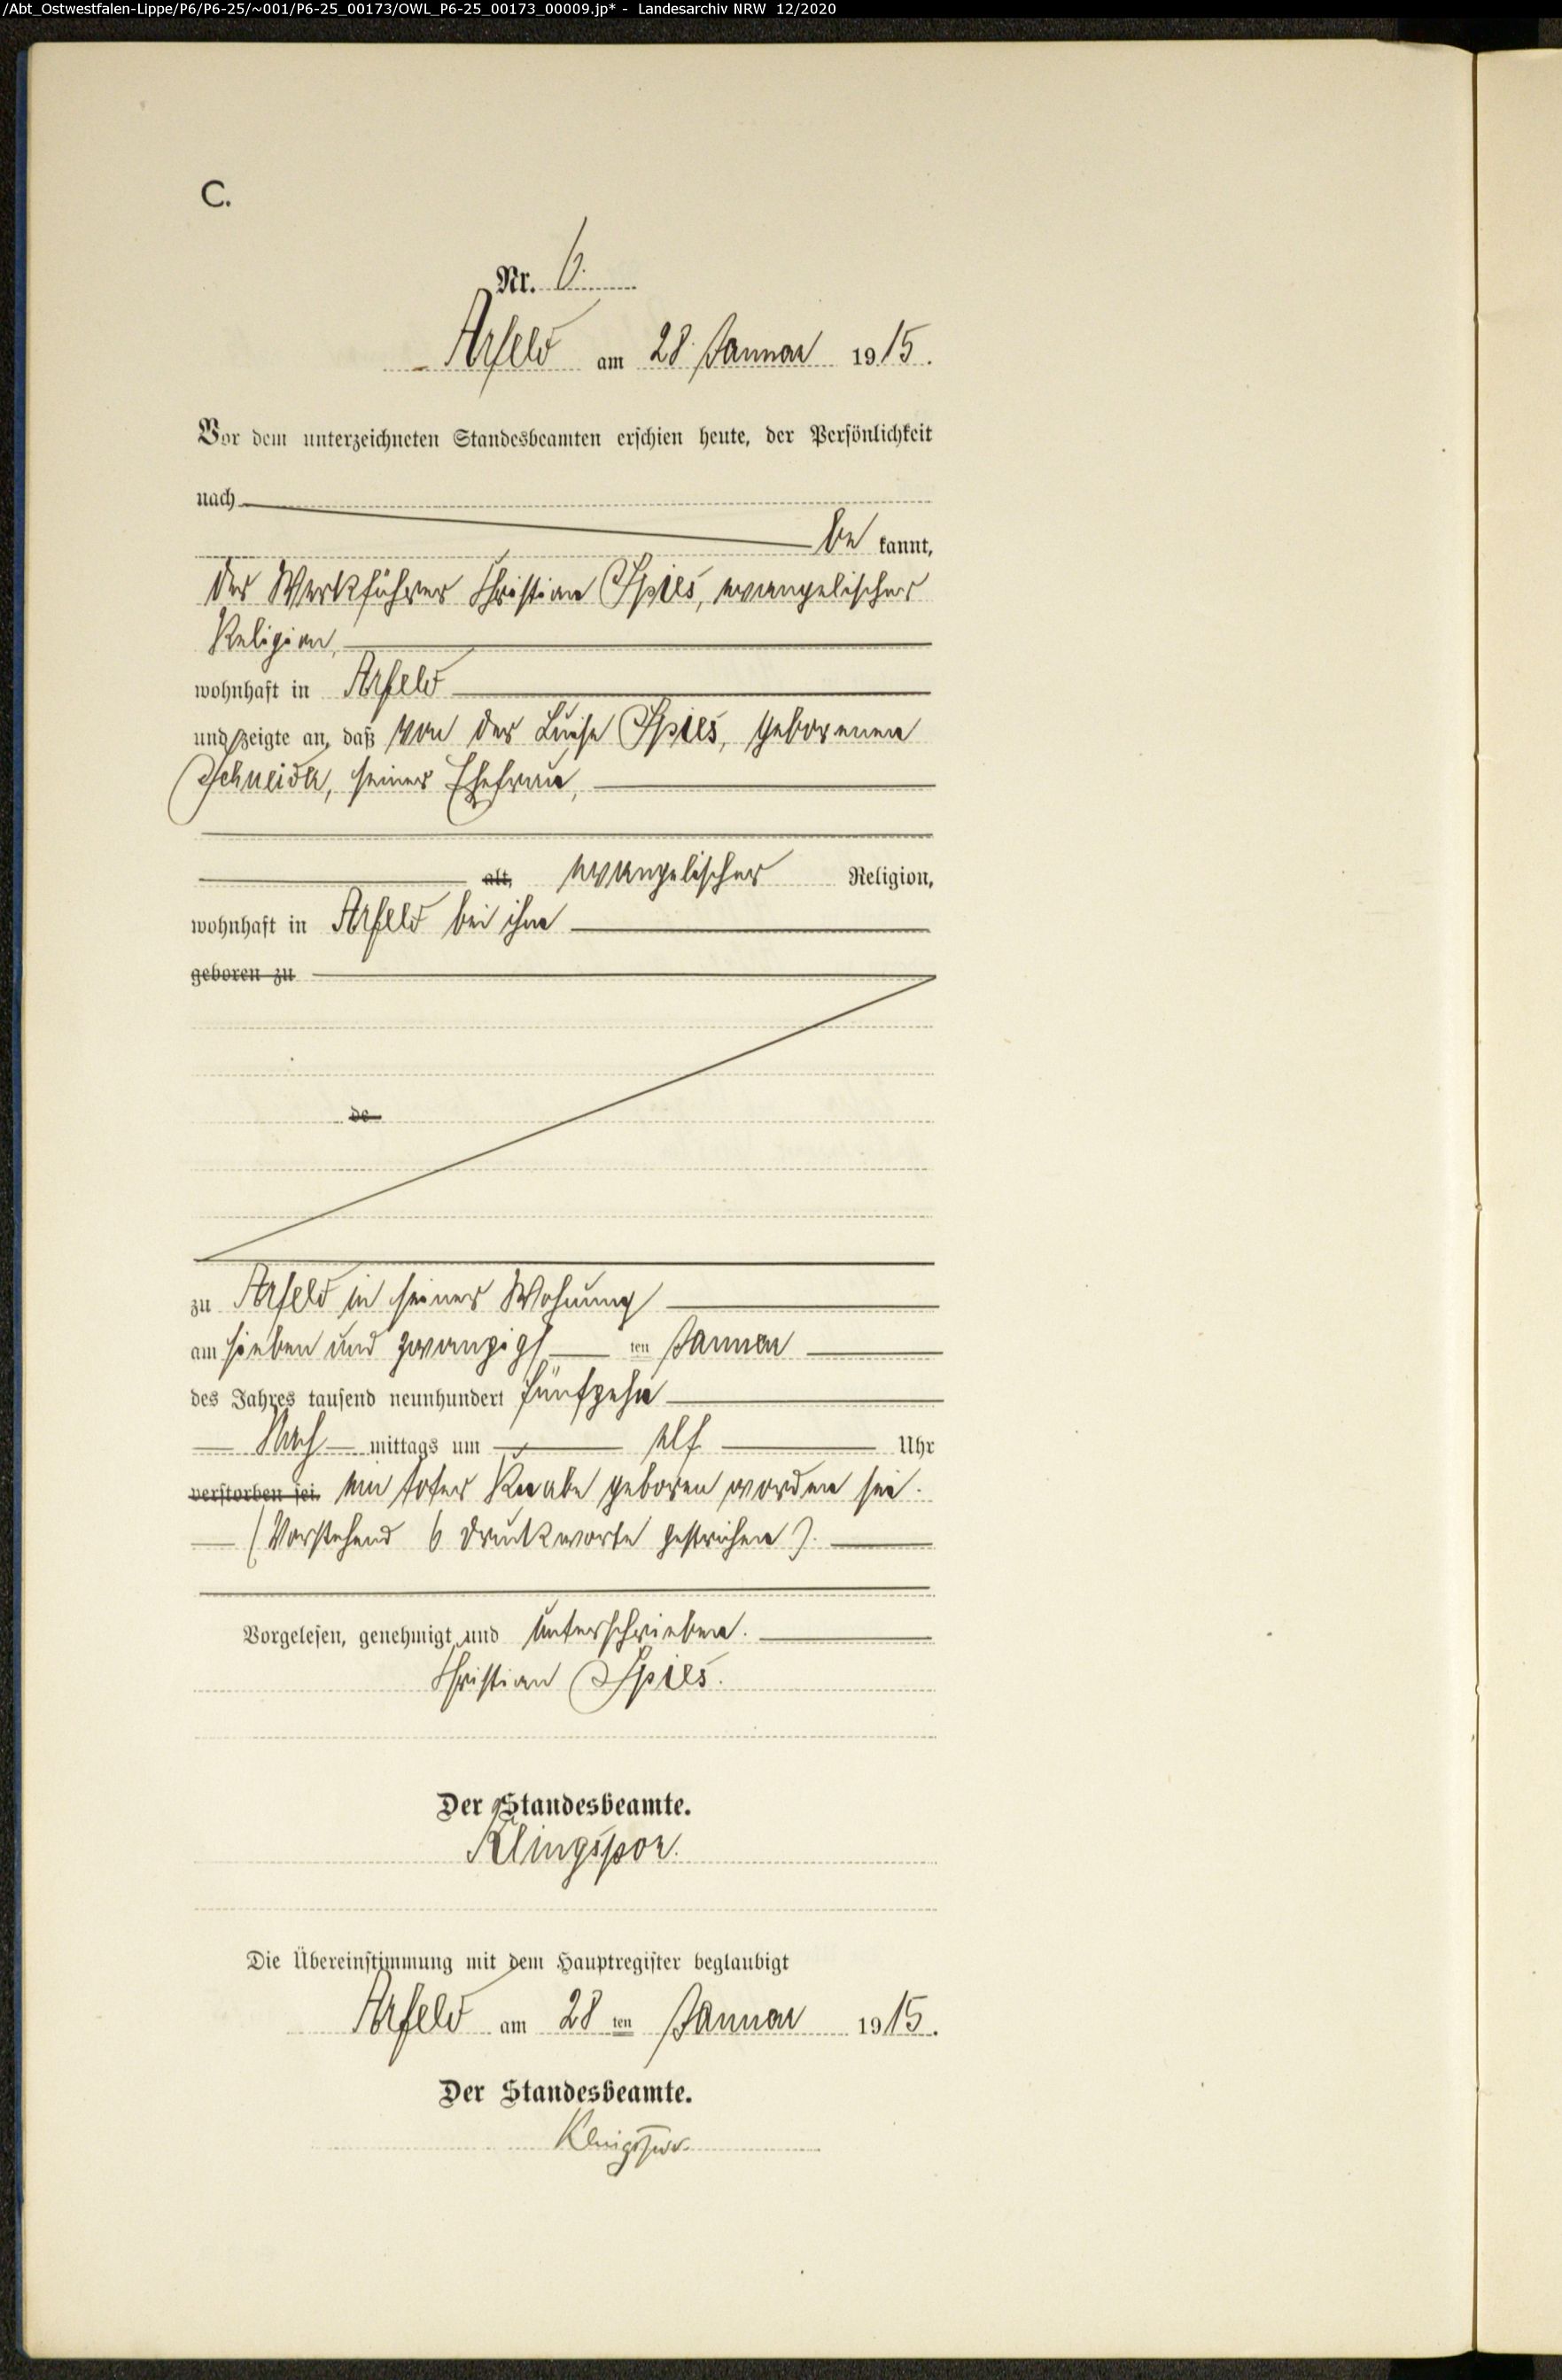 /Abt_Ostwestfalen-Lippe/P6/P6-25/~001/P6-25_00173/OWL_P6-25_00173_00009.jp* - Landesarchiv NRW 12/2020
C.
Nr. 6.
Arfeld am 28. Januar 1915.
Vor dem unterzeichneten Standesbeamten erschien heute, der Persönlichkeit
nach
be kannt,
der Werkführer Christian Spies, evangelischer
Religion,
wohnhaft in Arfeld
und zeigte an, daß von der Luise Spies, geborenen
Schneider, seiner Ehefrau,
alt, evangelischer Religion,
wohnhaft in Arfeld bei ihm
geboren zu
de
zu Arfeld in seiner Wohnung
am sieben und zwanzigs ten Januar
des Jahres tausend neunhundert fünfzehn
Nach mittags um elf Uhr
verstorben sei. ein toter Knabe geboren worden sei.
(Vorstehend 6 Druckworte gestrichen).
Vorgelesen, genehmigt und unterschrieben.
Christian Spies.
Der Standesbeamte.
Klingspor.
Die Übereinstimmung mit dem Hauptregister beglaubigt
Arfeld am 28 ten Januar 1915.
Der Standesbeamte.
Klingspor.